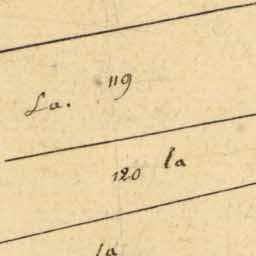 La. 119
120 la
la